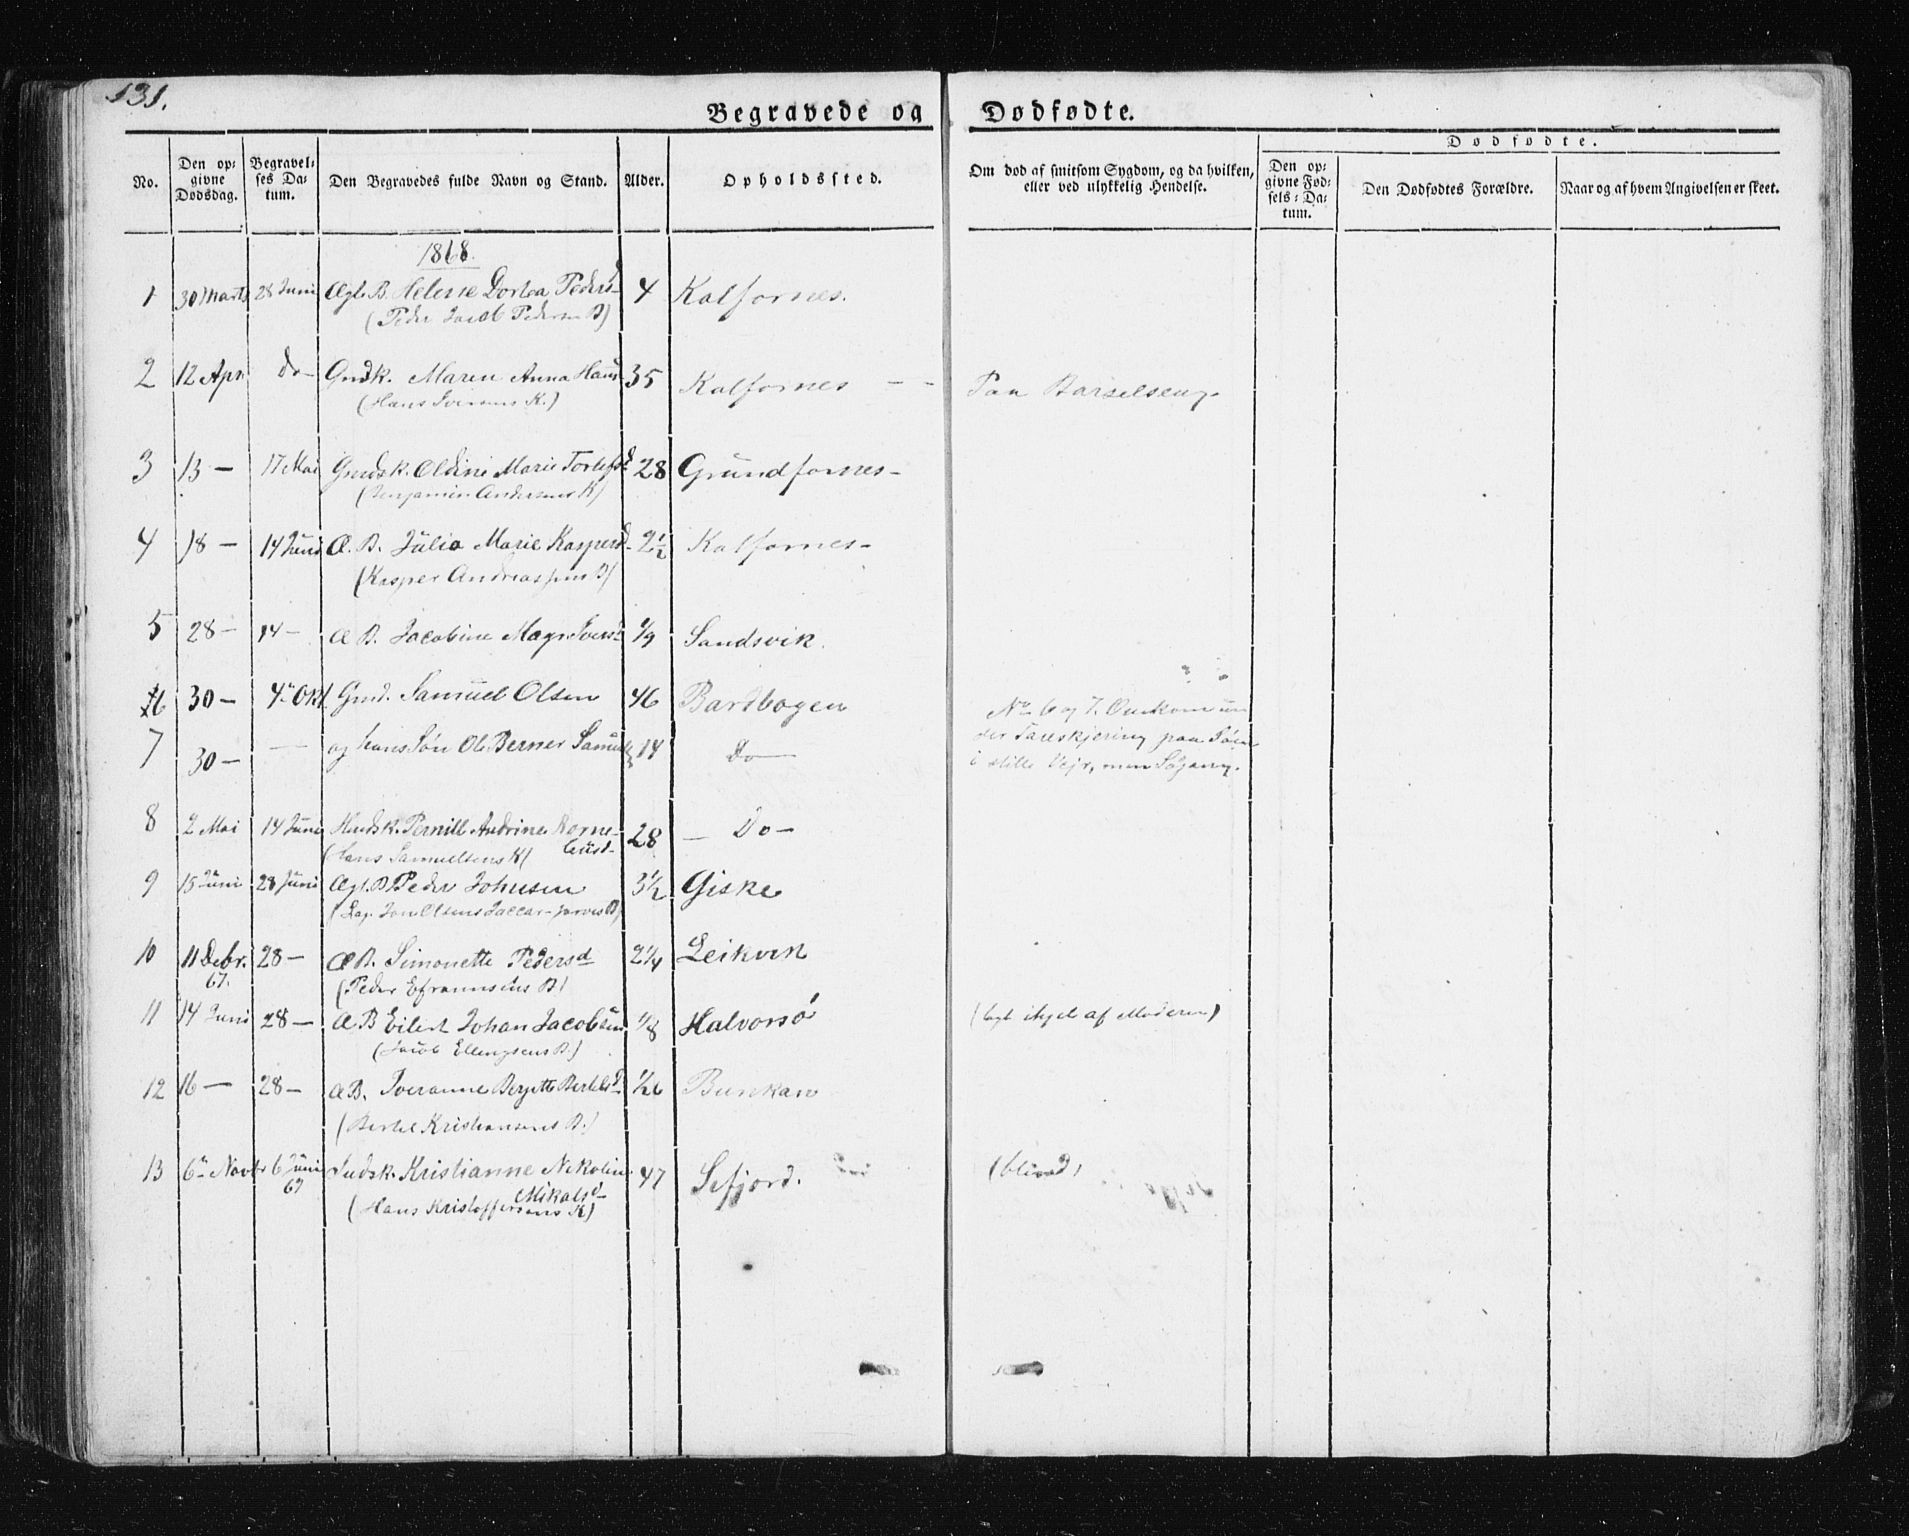 131.
Begravede og Dødfødte.
Dødfødte.
No.
Den opgivne Dødsdag.
Begravelses Datum.
Den Begravedes fulde Navn og Stand.
Alder.
Opholdssted.
Om død af smitsom Sygdom, og da hvilken, eller ved ulykkelig Hendelse.
Den opgivne Fødsels-Datum.
Den Dødfødtes Forældre.
Naar og af hvem Angivelsen er skeet.
1868.
1 30 Marts 28 Juni Ægt. B. Helene Dortea Pedersd 4 Kalfornes.
(Peder Jacob Pedersen B)
2 12 Apr. Do- Gmdk. Maren Anna Hansd 35 Kalfornes -- Paa Barselseng.
(Hans Iversens K.)
3 13 - 17 Mai Gmdsk. Oldine Marie Torlefsd 28 Grundfornes-
(Benjamin Andersens K)
4 18 - 14 Juni Æ. B. Julia Marie Kaspersd- 2½ Kalfornes-
(Kasper Andreassens B)
5 28 - 14 - Æ B. Jacobine Magr. Iversd 1/9 Sandsvik.
6 30 - 4de Okt. Gmd. Samuel Olsen 46 Bardbogen No 6 og 7. Omkom un
7 30 - — og hans Søn Ole Berner Samuels 14 Do— der Tareskjering paa Søen
i stille Vejr, men Søgang.
8 2 Mai 14 Juni Husdk. Pernill Andrine Korne- 28 — Do —
(Hans Samuelsens K) liusd-
9 15 Juni 28 Juni Ægt. B. Peder Johnsen 3½ Giske
(Lap. Jon Olsens B)
10 11 Debr. 28 — Æ B. Simonette Pedersd 2¼ Leikvik
67.
(Peder Efraimsens B)
11 14 Juni 28 — Æ B Eilert Johan Jacobsen 1/8 Halvorsö (lagt ihjel af Moderen)
(Jacob Ellingsens B.)
12 16 — 28 — Æ B. Iveranne Bergitte Bertelsd 1/26 Bunkan
(Bertel Kristiansens B.)
13 6te Novbr 6 Juni Indsk. Kristianne Nikoline 47 Sifjord. (blind)
69 Mikalsd-
(Hans Kristoffersens K)